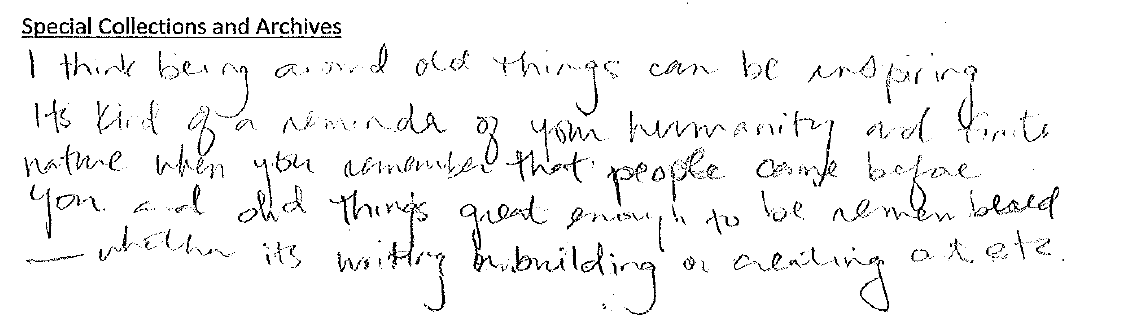 Special Collections and Archives
I think being around old things can be inspiring
Its kind of a reminder of your humanity and finite
nature when you remember that people came before
you and did things great enough to be remembered
— whether its writing or building or creating art etc.